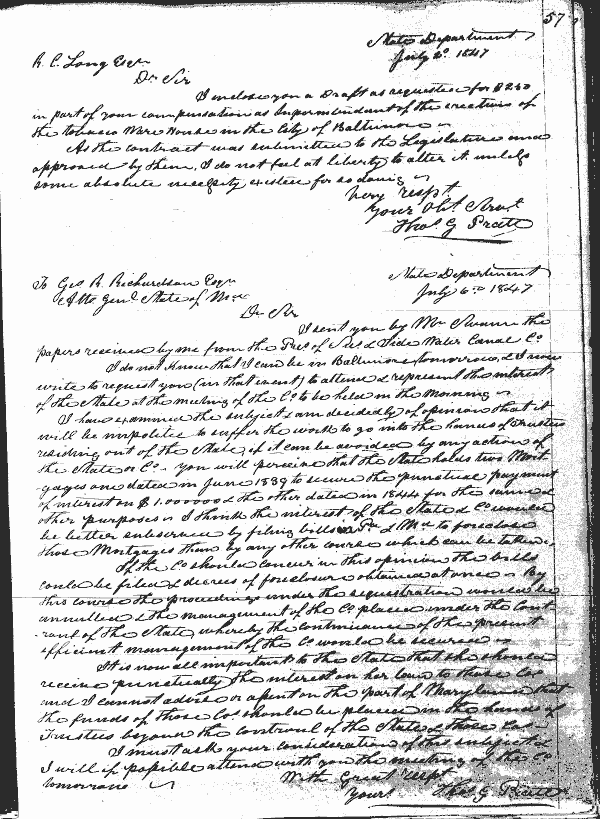 57
State Department
July 2d 1847
R. C. Long Esqr
Dr Sir
I inclose you a Draft as requested for $250
in part of your compensation as Superintendant of the erection of
the tobacco Ware House in the City of Baltimore
As the contract was submitted to the Legislature and
approved by them, I do not feel at liberty to alter it unless
some absolute necessity existed for so doing
Very respt
Your Obt Servt
Thos G Pratt
State Department
July 6th 1847
To Geo R. Richardson Esqr
Atto Genl State of Md
Dr Sir
I sent you by Mr the
papers received by me from the Prest of Sus & Tide Water Canal Co
I do not know that I can be in Baltimore tomorrow, & I now
write to request you (in that event) to attend & represent the interest
of the State at the meeting of the Co to be held in the morning
I have examined the subject & am decidedly of opinion that it
will be impolitic to suffer the work to go into the hands of Trustees
residing out of the State, if it can be avoided by any action of
the State or Co - you will perceive that the State holds two Mort
gages one dated in June 1839 to secure the punctual payment
of interest on $1.000000 & the other dated in 1844 for the same &
other purposes I think the interest of the State & Co would
be better subserved by filing bills in Pa & Md to foreclose
those Mortgages than by any other course which can be taken,
If the Co should concur in this opinion the bills
could be filed & decrees of foreclosure obtained at once - By
this course the proceedings under the sequestration would be
annulled & the management of the Co placed under the Cont
roul of the State, whereby the continuance of the present
efficient management of the Co would be secured
It is now all important to the State that she should
receive punctually the interest on her loan to those Cos
and I cannot advise or assent on the part of Maryland that
the funds of those Cos should be placed in the hands of
Trustees beyond the controul of the State & those Cos
I must ask your consideration of this subject &
I will if possible attend with you the meeting of the Co
tomorrow
With Great respt
Yours Thos G Pratt